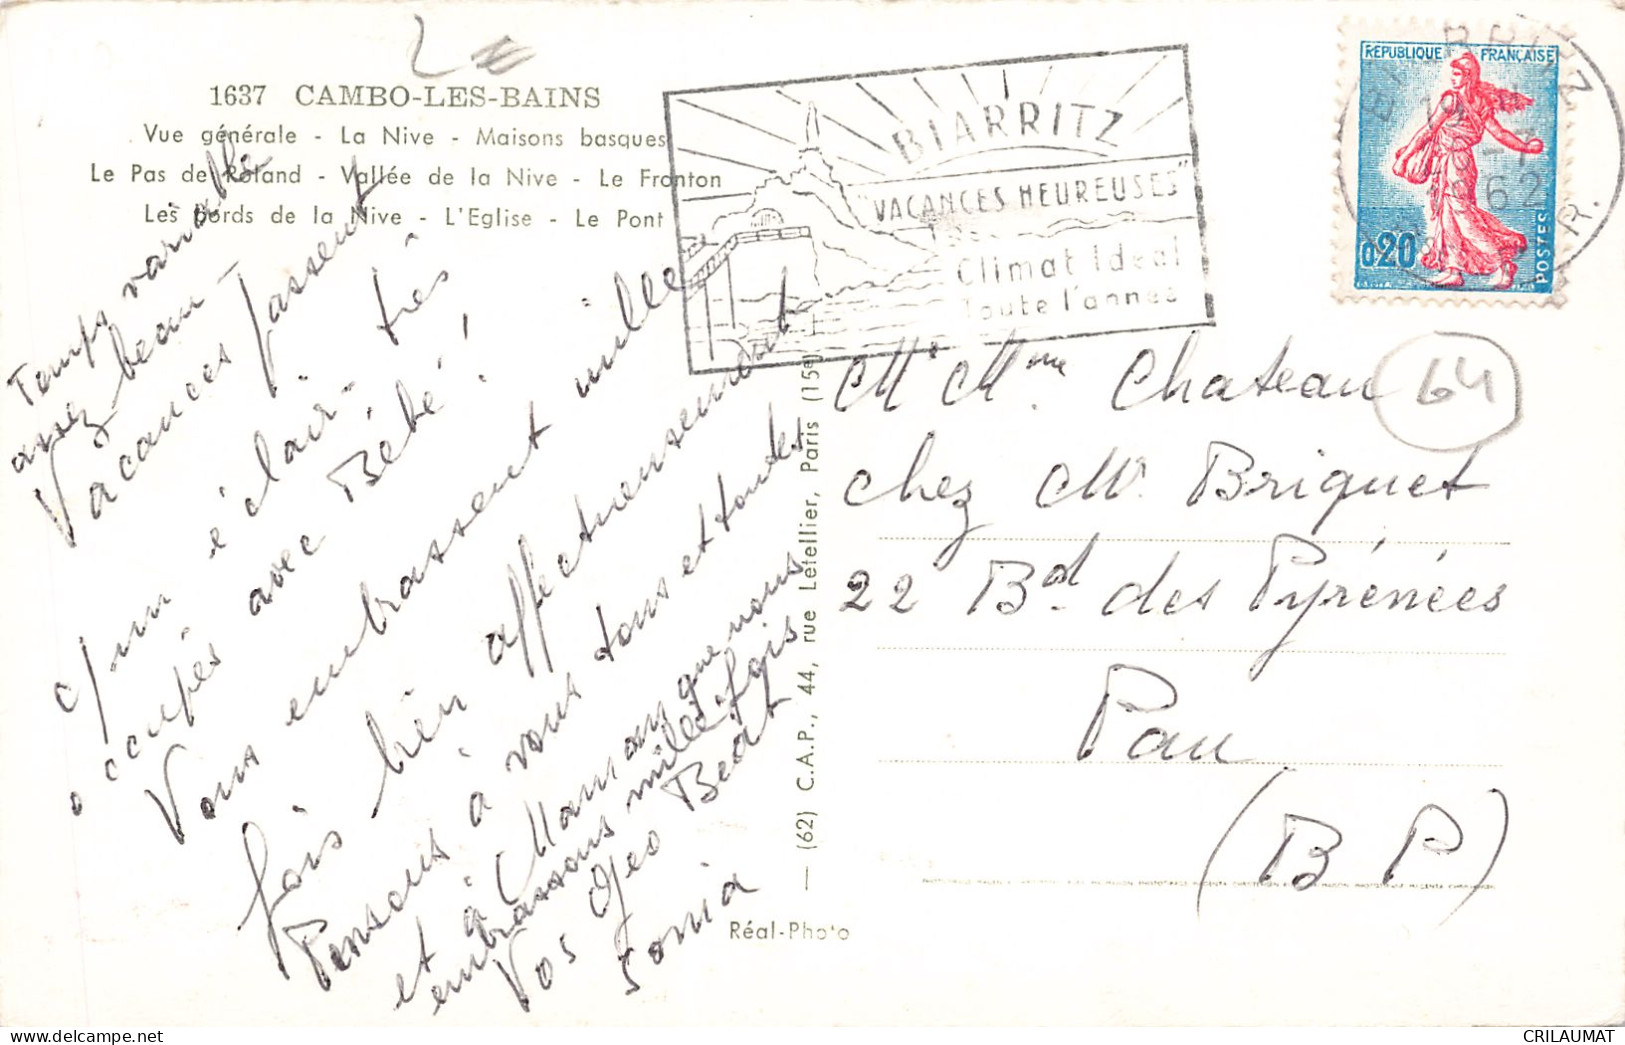 1637 CAMBO-LES-BAINS
Vue générale - La Nive - Maisons basques
Le Pas de Roland - Vallée de la Nive - Le Fronton
Les bords de la Nive - L'Eglise - Le Pont
Temps variable
assez beau -
Vacances Passent
c/ un éclair - très
occupés avec Bébé !
Vous embrassent mille
fois bien affectueusement
Pensons à vous tous et toutes
et à Maman que nous
embrassons mille fois
Vos Geo Beat
Sonia
— (62) C.A.P., 44, rue Letellier, Paris (15e)
Réal-Photo
BIARRITZ
"VACANCES HEUREUSES"
Climat Idéal
Toute l'année
REPUBLIQUE FRANÇAISE
0,20
POSTES
BIARRITZ
62
R.
Mr Mme Chateau
64
chez Mr. Briquet
22 Bd des Pyrénées
Pau
(B P)
CRILAUMAT